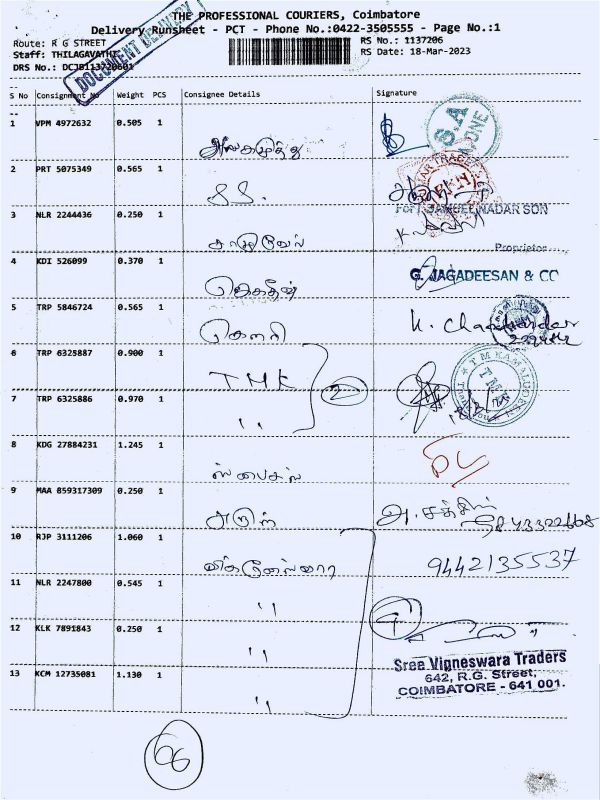 THE PROFESSIONAL COURIERS, Coimbatore
Delivery Runsheet - PCT - Phone No.:0422-3505555 - Page No.:1
DOCUMENT DELIVERY
Route: R G STREET
RS No.: 1137206
Staff: THILAGAVATHI
RS Date: 18-Mar-2023
DRS No.:
S No Consignment No Weight PCS Consignee Details Signature
1 VPM 4972632 0.505 1
S.A
2 PRT 5075349 0.565 1 S.S.
For SAMUEL NADAR SON
3 NLR 2244436 0.250 1 சாமுவேல்
Proprietor
4 KDI 526099 0.370 1 ஜெகதீஸ்
G. JAGADEESAN & CO
5 TRP 5846724 0.565 1 கௌரி
6 TRP 6325887 0.900 1 TMK
2
7 TRP 6325886 0.970 1 ,,
8 KDG 27884231 1.245 1
9 MAA 859317309 0.250 1 அருள்
10 RJP 3111206 1.060 1 விக்னேஸ்வரா 9442135537
11 NLR 2247800 0.545 1 ,,
4
12 KLK 7891843 0.250 1 ,,
Sree Vigneswara Traders
642, R.G. Street,
COIMBATORE - 641 001.
13 KCM 12735081 1.130 1 ,,
66